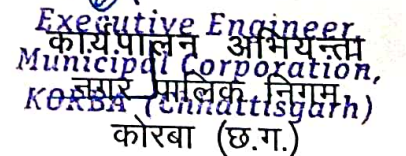 Executive Engineer
कार्यपालन अभियन्ता
Municipal Corporation,
नगर पालिक निगम
KORBA (Chhattisgarh)
कोरबा (छ.ग.)